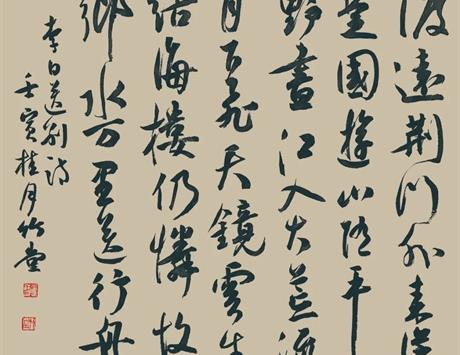 渡遠荆门外来從
楚國遊山随平
野盡江入大荒流
月下飛天鏡雲生
結海樓仍憐故
鄉水万里送行舟
李白送别诗
壬寅桂月竹堂